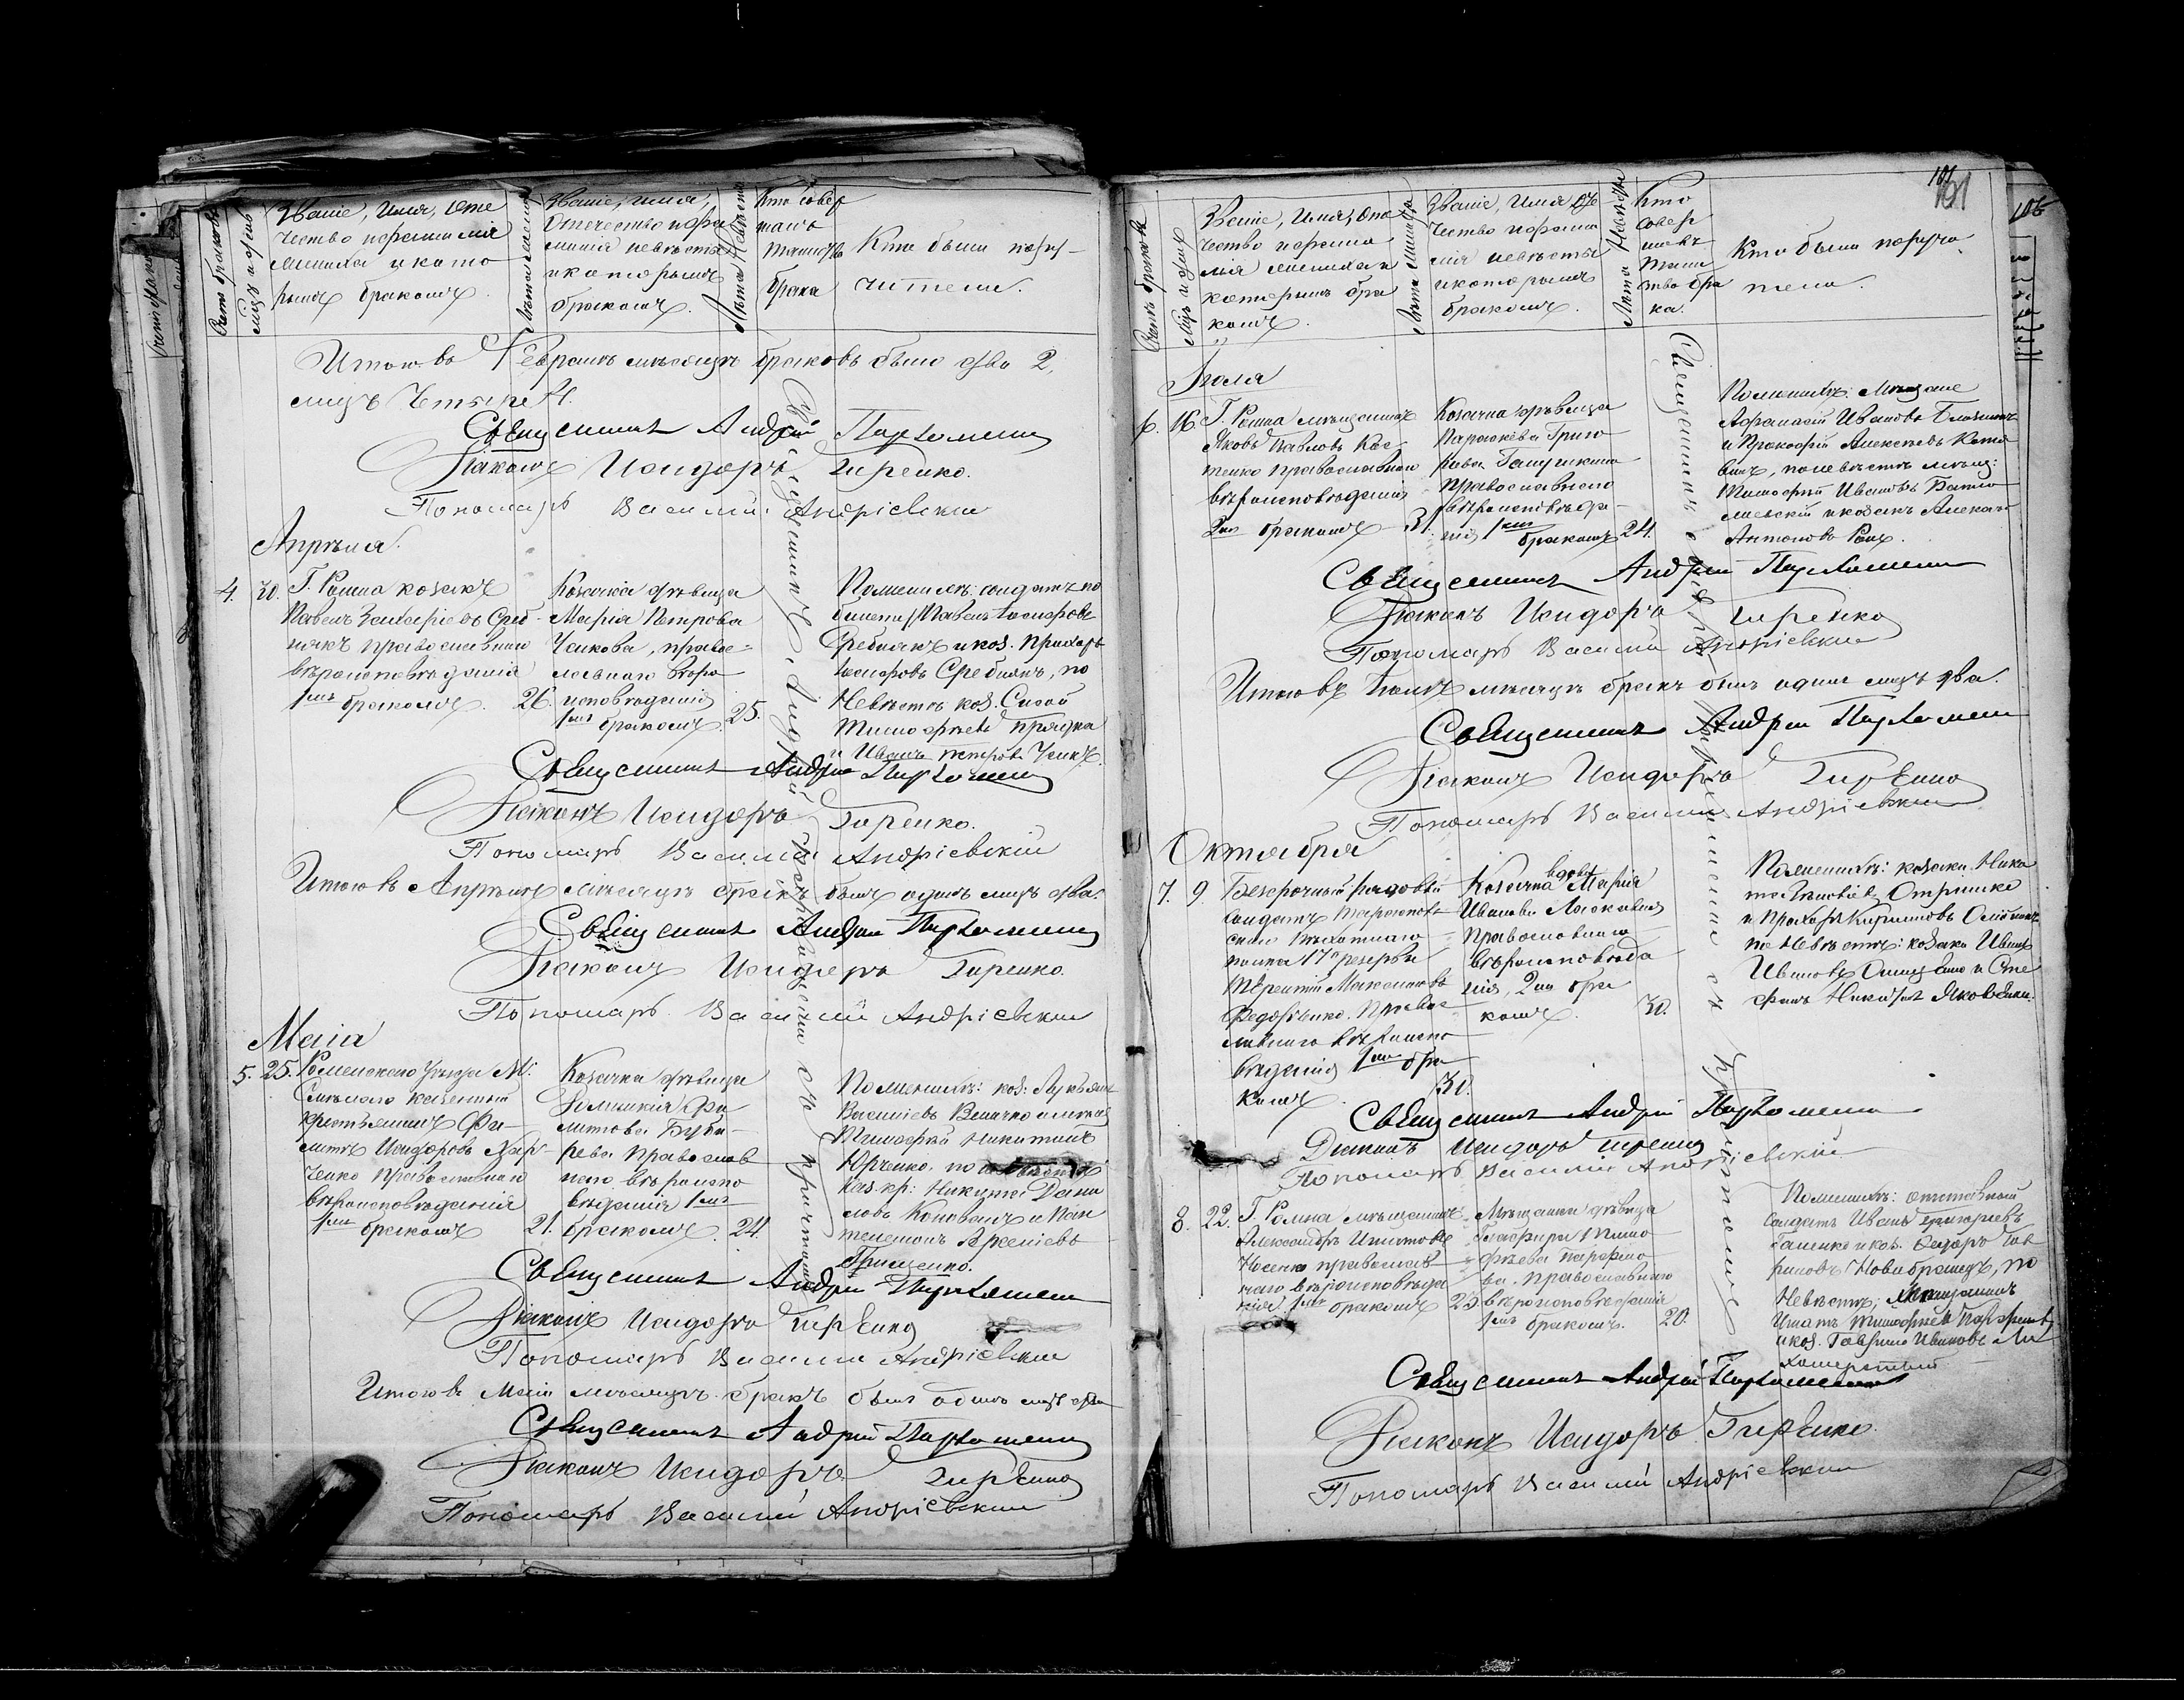 Счетъ браковъ
Мцъ и день
Званіе, Имя, Оте
чество и фамилія
Жениха и кото
рымъ бракомъ.
Лѣта жениха
Званіе, имя,
Отечество и фа
милія невѣсты
и которымъ
бракомъ.
Лѣта Невѣсты
Кто совер
шалъ
таинство
брака
Кто были пору-
чители.
Итого въ Февралѣ мѣсяцѣ браковъ было два 2,
лицъ четыре 4.
Священникъ Андрей Пархоменко
Діаконъ Исидоръ Гиренко.
Пономарь Василій Андріевскій
Апрѣля.
4. 30. Г. Ромна козакъ
Павелъ Захаріевъ Среб-
някъ православнаго
вѣроисповѣданія
1мъ бракомъ. 26.
Козачка дѣвица
Марія Петрова
Чепкова, правос-
лавнаго вѣро
исповѣданія
1мъ бракомъ. 25.
По женихѣ: солдатъ по
билету Павелъ
Сребнякъ и коз. Прохоръ
Сребнякъ, по
Невѣстѣ коз. Сысой
Тимофѣевъ
и Иванъ Петровъ
Священникъ Андрей Пархоменко
Діаконъ Исидоръ Гиренко.
Пономарь Василій Андріевскій
Итого въ Апрѣлѣ мѣсяцѣ бракъ былъ одинъ лицъ два.
Священникъ Андрей Пархоменко
Діаконъ Исидоръ Гиренко.
Пономарь Василій Андріевскій
Маія
5. 25. Роменскаго уѣзда М:
Смѣлаго казенный
крестьянинъ Фи-
липъ Исидоровъ Хар-
ченко православнаго
вѣроисповѣданія
1мъ бракомъ 21.
Козачка дѣвица
Фи-
липова Бубы-
рева православ
наго вѣроиспо
вѣданія 1мъ
бракомъ. 24.
По женихѣ: коз: Лукьянъ
Василіевъ Величко
Тимофѣй Никитинъ
Юрченко, по невѣстѣ
каз. кр: Никита Дани
ловъ Коновалъ и Пан
телемонъ
Грищенко.
Священникъ Андрей Пархоменко
Діаконъ Исидоръ Гиренко
Пономарь Василій Андріевскій
Итого въ Маіи мѣсяцѣ бракъ былъ одинъ лицъ два
Священникъ Андрей Пархоменко
Діаконъ Исидоръ Гиренко
Пономарь Василій Андріевскій
Священникъ Андрей Пархоменко съ причтомъ
101
106
Счетъ браковъ
Мцъ и день
Званіе, Имя, Оте
чество и фами
лія жениха и
которымъ бра
комъ.
Лѣта жениха
Званіе, Имя, Оте
чество и фами
лія невѣсты
и которымъ
бракомъ.
Лѣта Невѣсты
Кто
совер
шалъ
таин
ство бра
ка.
Кто были поручи
тели.
Іюля
6. 16. Г. Ромна мѣщанинъ
Яковъ Павловъ Кос
тенко православнаго
вѣроисповѣданія
2мъ бракомъ 31.
Козачка дѣвица
Параскева Григо
рьева
православнаго
вѣроисповѣда-
нія 1мъ
бракомъ 24.
По женихѣ: Мѣщане
Афанасій Ивановъ
и Прокофій Алексѣевъ
по невѣстѣ мѣщ:
Тимофѣй Ивановъ
и козакъ
Антоновъ
Священникъ Андрей Пархоменко
Діаконъ Исидоръ Гиренко
Пономарь Василій Андріевскій
Итого въ Іюлѣ мѣсяцѣ бракъ былъ одинъ лицъ два.
Священникъ Андрей Пархоменко
Діаконъ Исидоръ Гиренко
Пономарь Василій Андріевскій
Октября
7. 9. Безсрочный рядовый
солдатъ
скаго пѣхотнаго
полка 17 резерва
Терентій Максимовъ
Федоренко. Правос
лавнаго вѣроиспо
вѣданія 1мъ бра
комъ. 30.
вдова
Козачка Марія
Иванова
православнаго
вѣроисповѣда
нія, 2мъ бра
комъ. 30.
По женихѣ: козаки Ники
та
и Прохоръ Кириловъ
по Невѣстѣ: козаки Иванъ
Ивановъ и Сте
фанъ Никитинъ Яковенко.
Священникъ Андрей Пархоменко
Діаконъ Исидоръ Гиренко
Пономарь Василій Андріевскій
8. 22. Г. Ромна мѣщанинъ
Александръ Игнатовъ
Носенко православ
наго вѣроисповѣда
нія 1мъ бракомъ 23.
Мѣщанка дѣвица
Глафира Тимо
фѣева Парфено
ва. православнаго
вѣроисповѣданія
1мъ бракомъ. 20.
По женихѣ: отставной
солдатъ Иванъ Григорьевъ
Галенко и коз. Федоръ Гав
риловъ Новобранецъ, по
Невѣстѣ; Мѣщанинъ
Игнатъ Тимофѣевъ Парфеновъ
и коз. Гаврило Ивановъ
Священникъ Андрей Пархоменко
Діаконъ Исидоръ Гиренко.
Пономарь Василій Андріевскій
Священникъ Андрей Пархоменко съ причтомъ